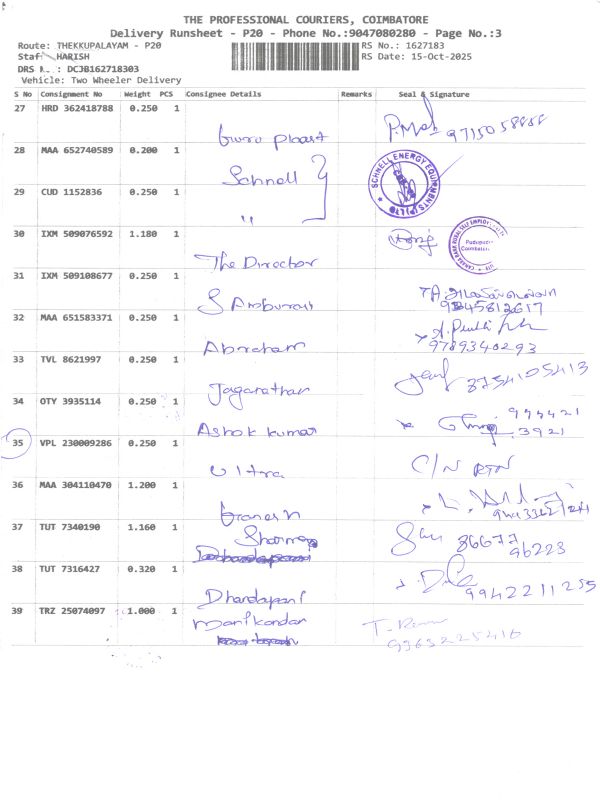 THE PROFESSIONAL COURIERS, COIMBATORE
Delivery Runsheet - P20 - Phone No.:9047080280 - Page No.:3
Route: THEKKUPALAYAM - P20 RS No.: 1627183
Staff HARISH RS Date: 15-Oct-2025
DRS : DCJB162718303
Vehicle: Two Wheeler Delivery
S No Consignment No Weight PCS Consignee Details Remarks Seal & Signature
27 HRD 362418788 0.250 1
Guru plast
28 MAA 652740589 0.200 1
Schnell
SCHNELL ENERGY EQUIPMENTS (P) LTD
29 CUD 1152836 0.250 1
"
30 IXM 509076592 1.180 1
The Director
31 IXM 509108677 0.250 1
S Anburaj
9345812617
32 MAA 651583371 0.250 1
Abraham
9789340293
33 TVL 8621997 0.250 1
Jaganathan
8754105413
34 OTY 3935114 0.250 1
Ashok kumar
994421
3921
35 VPL 230009286 0.250 1
Ultra
C/N RTN
36 MAA 304110470 1.200 1
Ganesh
37 TUT 7340190 1.160 1
Sharma
86677
96223
38 TUT 7316427 0.320 1
Dhandapani
9942211255
39 TRZ 25074097 1.000 1
Manikandan
9963225416